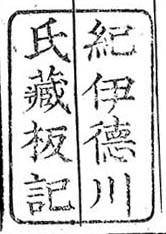 紀伊德川
氏藏板記